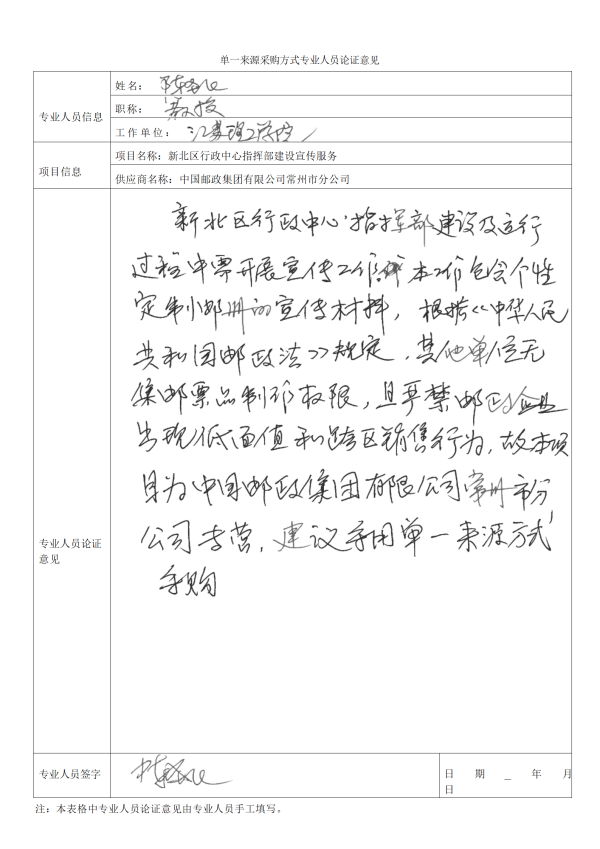 单一来源采购方式专业人员论证意见
专业人员信息
姓名：
职称： 教授
工作单位： 江苏理工学院
项目信息
项目名称：新北区行政中心指挥部建设宣传服务
供应商名称：中国邮政集团有限公司常州市分公司
新北区行政中心指挥部建设及运行
过程中需开展宣传工作 本工作包含个性
定制邮册的宣传材料，根据《中华人民
共和国邮政法》规定，其他单位无
集邮票品制作权限，且严禁邮政企业
出现低面值和跨区销售行为，故本项
目为中国邮政集团有限公司常州市分
公司专营，建议采用单一来源方式
采购
专业人员论证
意见
专业人员签字
日 期 _ 年 月
日
注：本表格中专业人员论证意见由专业人员手工填写。